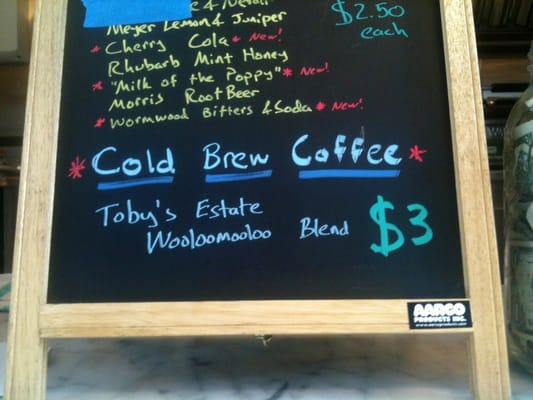 & Nettle
Meyer Lemon & Juniper
$2.50
each
* Cherry Cola * New!
Rhubarb Mint Honey
* "Milk of the Poppy" * New!
Morris Root Beer
* Wormwood Bitters & Soda * New!
* Cold Brew Coffee *
Toby's Estate
Wooloomooloo Blend
$3
AARCO
PRODUCTS INC.
www.aarcoproducts.com